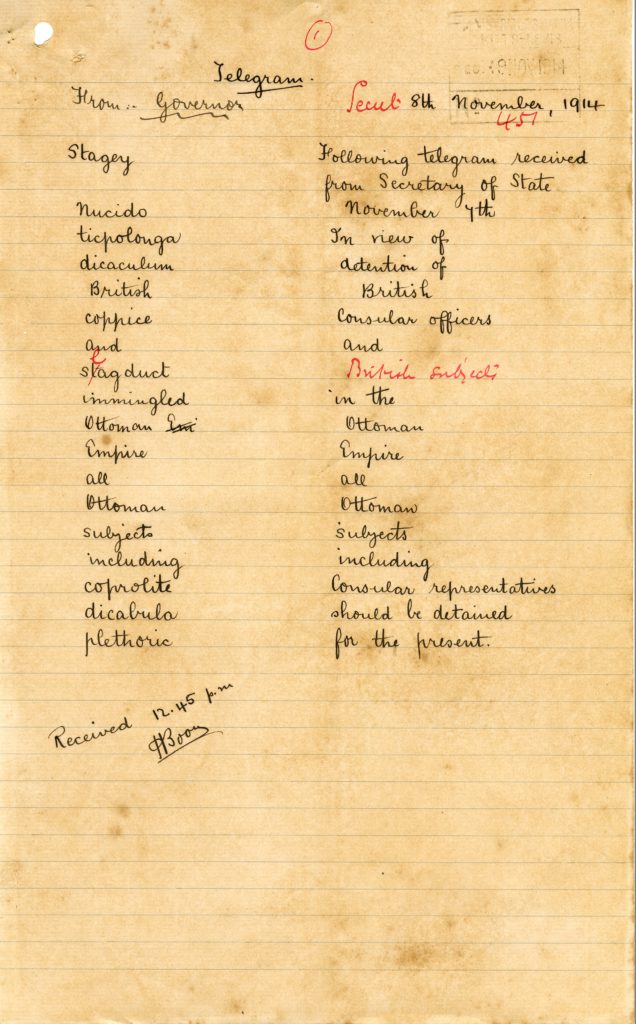 ①
Telegram.
From:- Governor Secret 8th November, 1914
451
Stagey Following telegram received
from Secretary of State
Nucido November 7th
ticpolonga In view of
dicaculum detention of
British British
coppice Consular officers
and and
stagduct British subjects
immingled in the
Ottoman Ottoman
Empire Empire
all all
Ottoman Ottoman
subjects subjects
including including
coprolite Consular representatives
dicabula should be detained
plethoric for the present.
Received 12.45 p.m